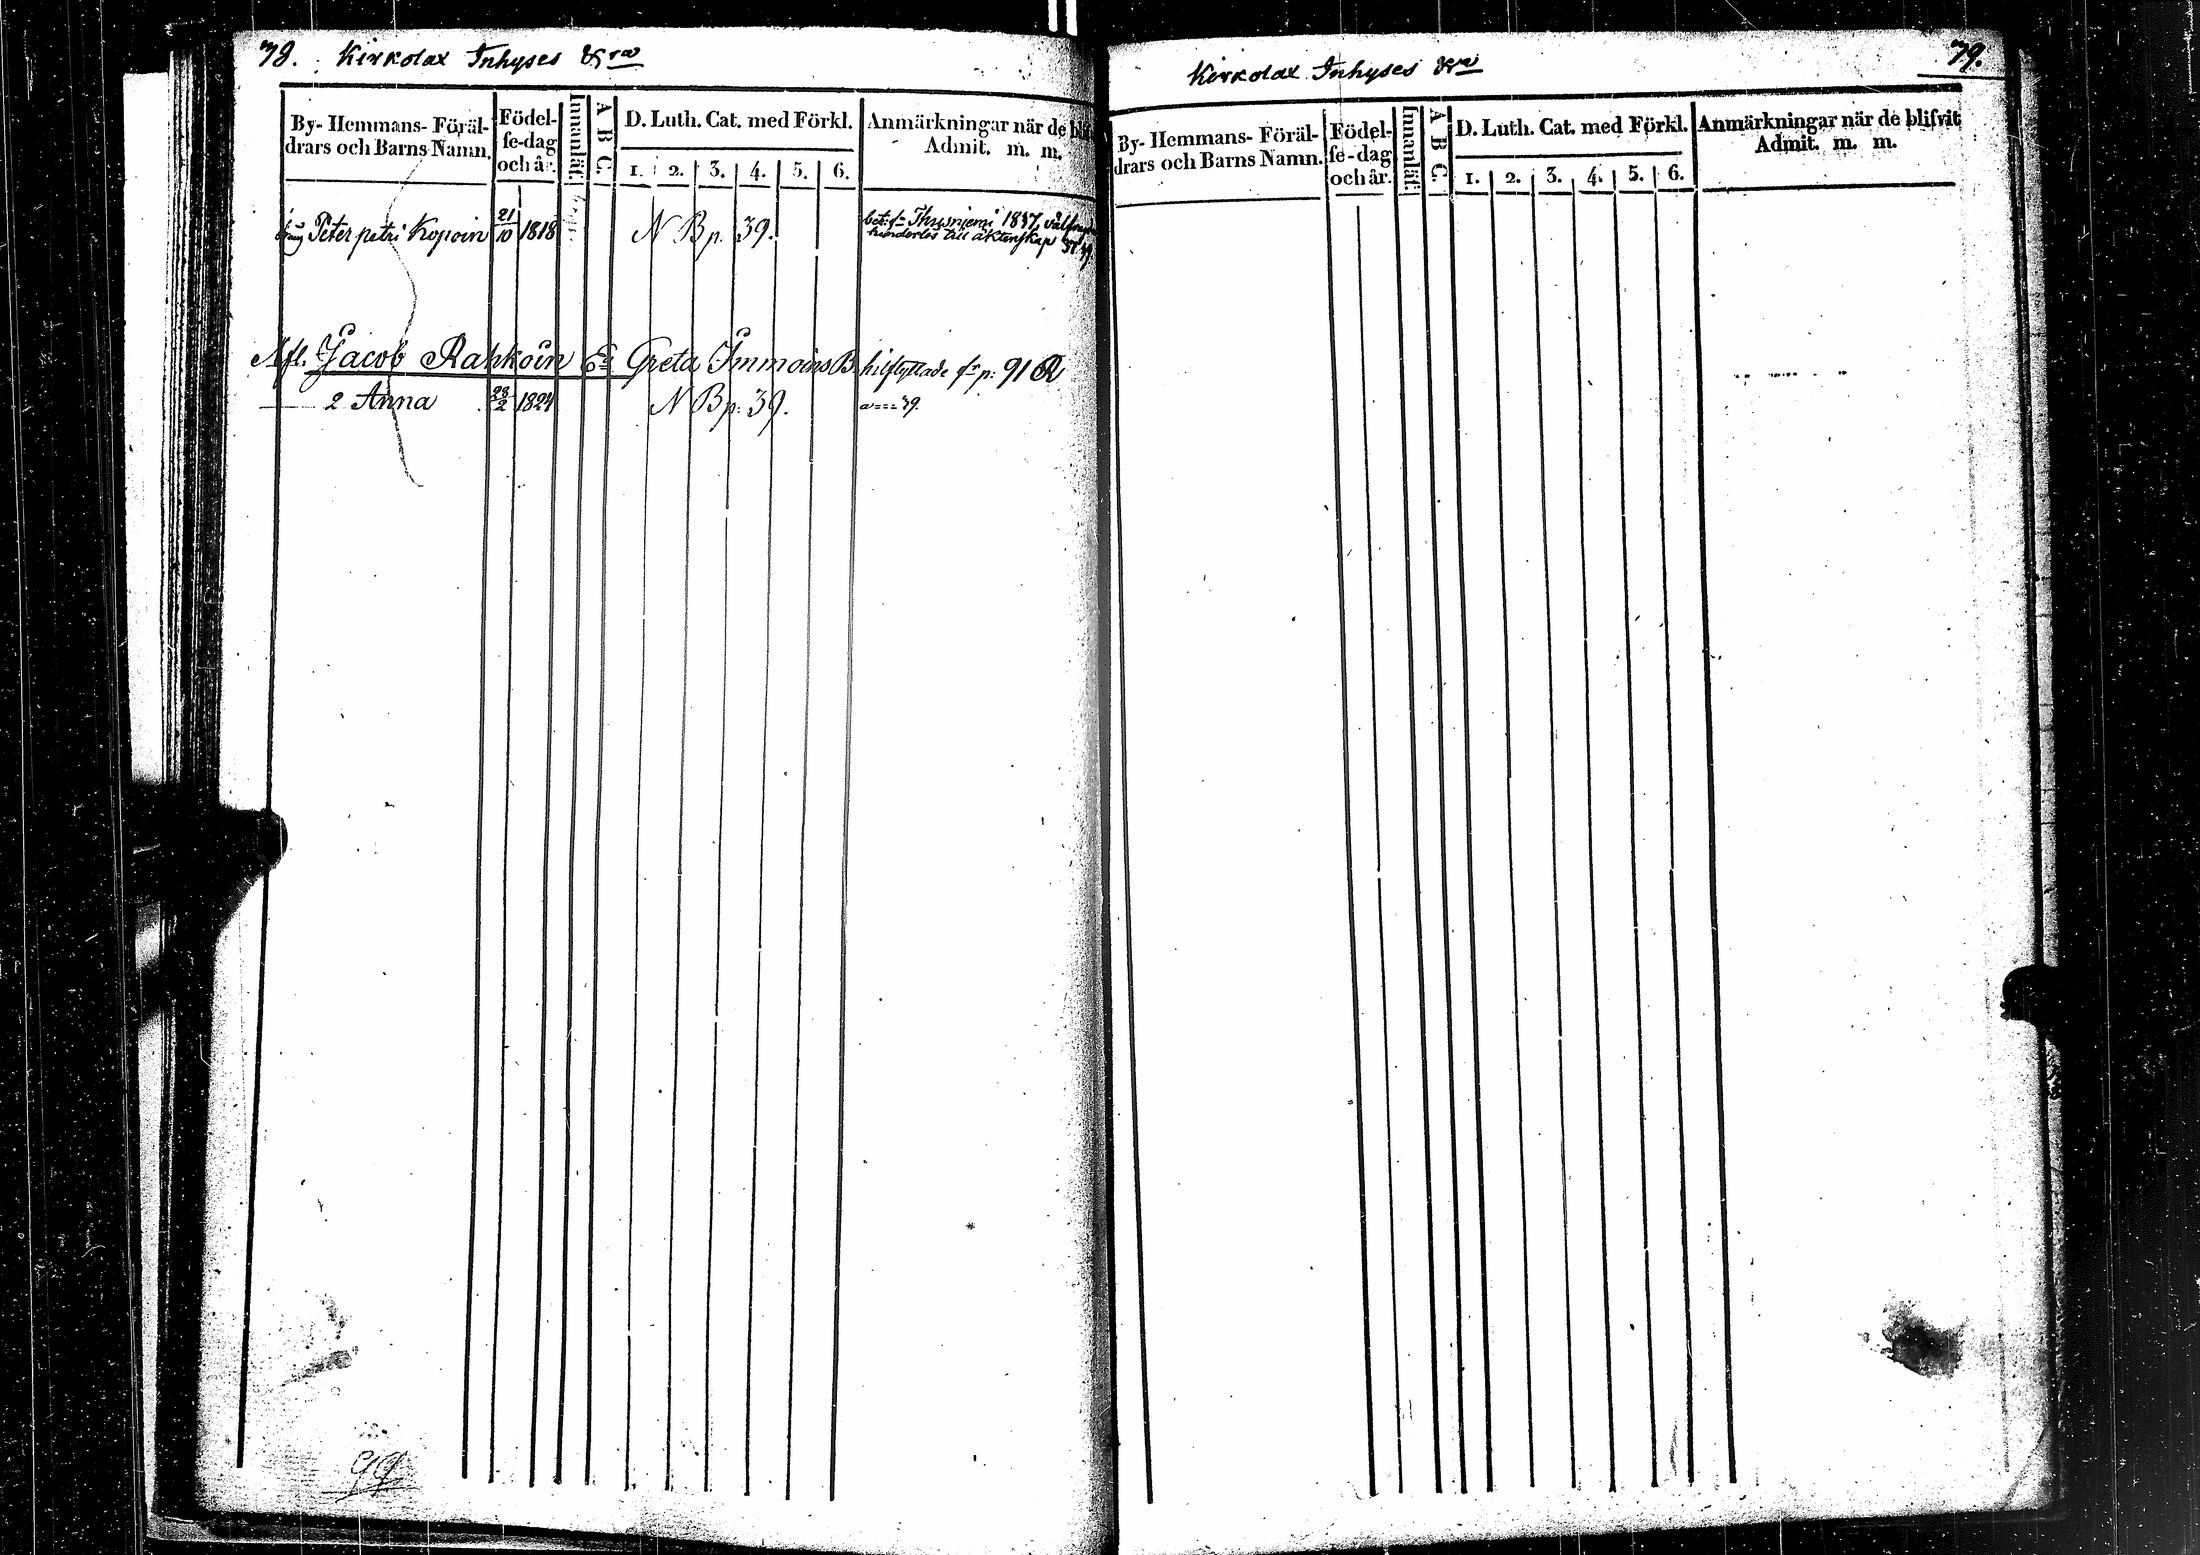 78. Kirkolax Inhyses &ra
By- Hemmans- Föräl-
drars och Barns Namn.
Födel-
se-dag
och år.
Innanläs.
A B C.
D. Luth. Cat. med Förkl.
1. 2. 3. 4. 5. 6.
Anmärkningar när de bli
Admit. m. m.
Peter petri Kopoin 21/10 1818 N B p. 39.
bet: fr Thusniemi 1837,
hinderlös till äktenskap
Afl. Jacob Rahkoin Greta Immoins B. hitflyttade fr p: 91
2 Anna 28/2 1824 N B p: 39. a 39.
99
Kirkolax Inhyses &ra 79.
By- Hemmans- Föräl-
drars och Barns Namn.
Födel-
se-dag
och år.
Innanläs.
A B C.
D. Luth. Cat. med Förkl.
1. 2. 3. 4. 5. 6.
Anmärkningar när de blifvit
Admit. m. m.